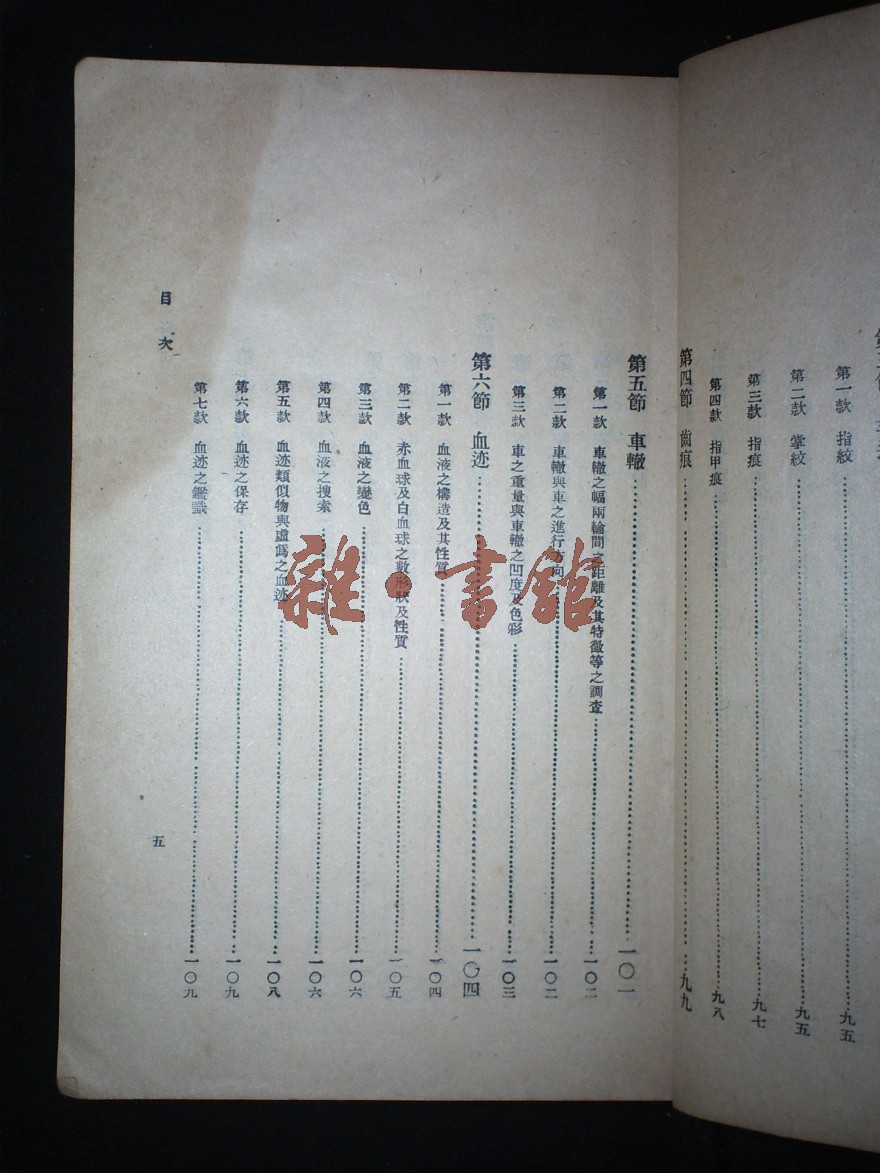 第一款　指紋……九五
第二款　掌紋……九五
第三款　指痕……九七
第四款　指甲痕……九八
第四節　齒痕……九九
第五節　車轍……一〇一
第一款　車轍之幅兩輪間之距離及其特徵等之調查……一〇二
第二款　車轍與車之進行方向……一〇二
第三款　車之重量與車轍之凹度及色彩……一〇三
第六節　血迹……一〇四
第一款　血液之構造及其性質……一〇四
第二款　赤血球及白血球之數形狀及性質……一〇五
第三款　血液之變色……一〇六
第四款　血液之搜索……一〇六
第五款　血迹類似物與虛僞之血迹……一〇八
第六款　血迹之保存……一〇九
第七款　血迹之鑑識……一〇九
目次
五
雜·書館